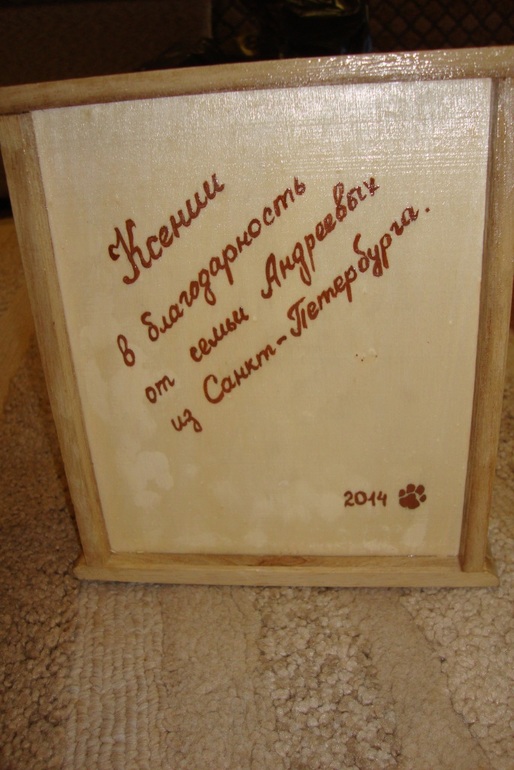 Ксении
в благодарность
от семьи Андреевых
из Санкт-Петербурга.
2014